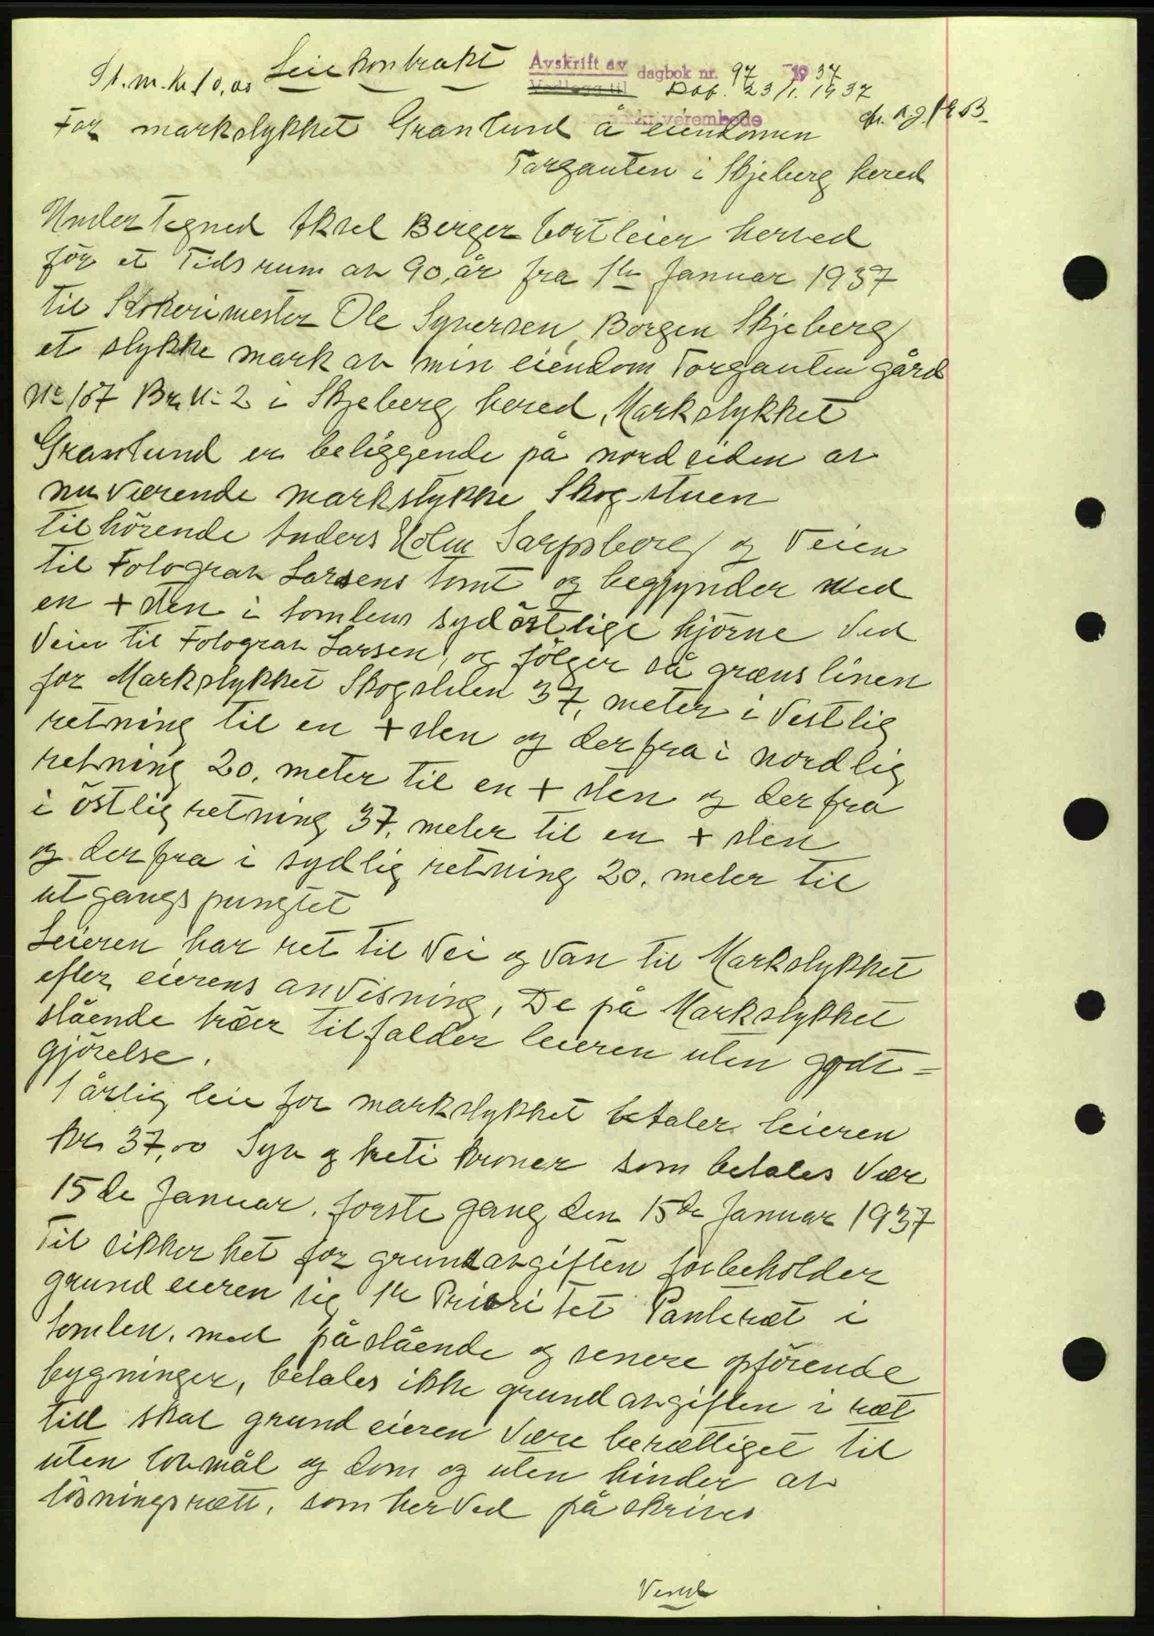 St.m.kr 10,00 Leiekontrakt Avskrift av dagbok nr. 97 1937
Vedlegg til Dab. 23/1. 1937
For markstykket Granlund å eiendomen
Torgauten i Skjeberg hered
Under Tegned Aksel Berger bortleier herved
for et Tidsrum av 90,år fra 1ste Januar 1937
til Kokerimester Ole Syversen, Borgen Skjeberg
et stykke mark av min eiendom Torgauten gård
No 107 Br.N: 2 i Skjeberg hered, Markstykket
Granlund er beliggende på nordsiden av
nuværende markstykke Skogstuen
tilhörende Anders Holm Sarpsborg og Veien
til Fotograv Larsens tomt og begynder ved
en + sten i tomtens sydöstlige hjörne Ved
Veien til Fotograv Larsen, og fölger så grænslinen
for Markstykket Skogstuen 37, meter i Vestlig
retning til en + sten og derfra i nordlig
retning 20. meter til en + sten og derfra
i östlig retning 37. meter til en + sten
og derfra i sydlig retning 20. meter til
utgangspungtet
Leieren har ret til Vei og Van til Markstykket
efter eierens anvisning, De på Markstykket
stående træer tilfalder leieren uten godt-
gjörelse.
I årlig leie for markstykket betaler leieren
kr 37,00 Syv og treti kroner som betales Vær
15de Januar. forste gang den 15de Januar 1937
Til sikkerhet for grundavgiften forbeholder
grundeieren sig 1ste Prioritet Panteræt i
tomten. med påstående og senere opförende
bygninger, betales ikke grundavgiften i ræt
tid skal grundeieren Være berættiget til
uten lovmål og dom og uten hinder av
lösningsrætt, som herved påskrives
Vend